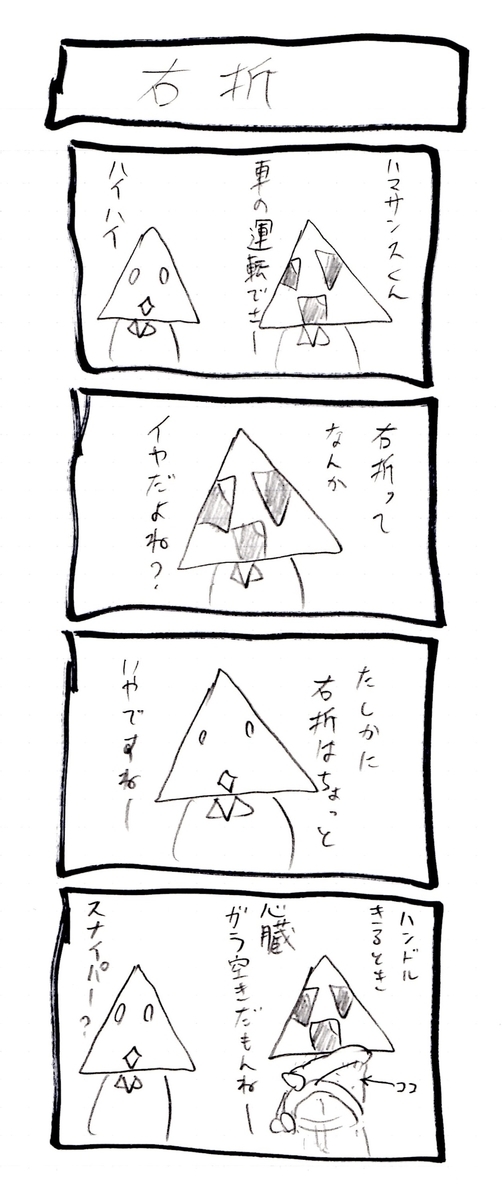 右折
ハマサンスくん
車の運転でさー
ハイハイ
右折って
なんか
イヤだよね?
たしかに
右折はちょっと
いやですねー
ハンドル
きるとき
心臓
ガラ空きだもんねー
ココ
スナイパー?